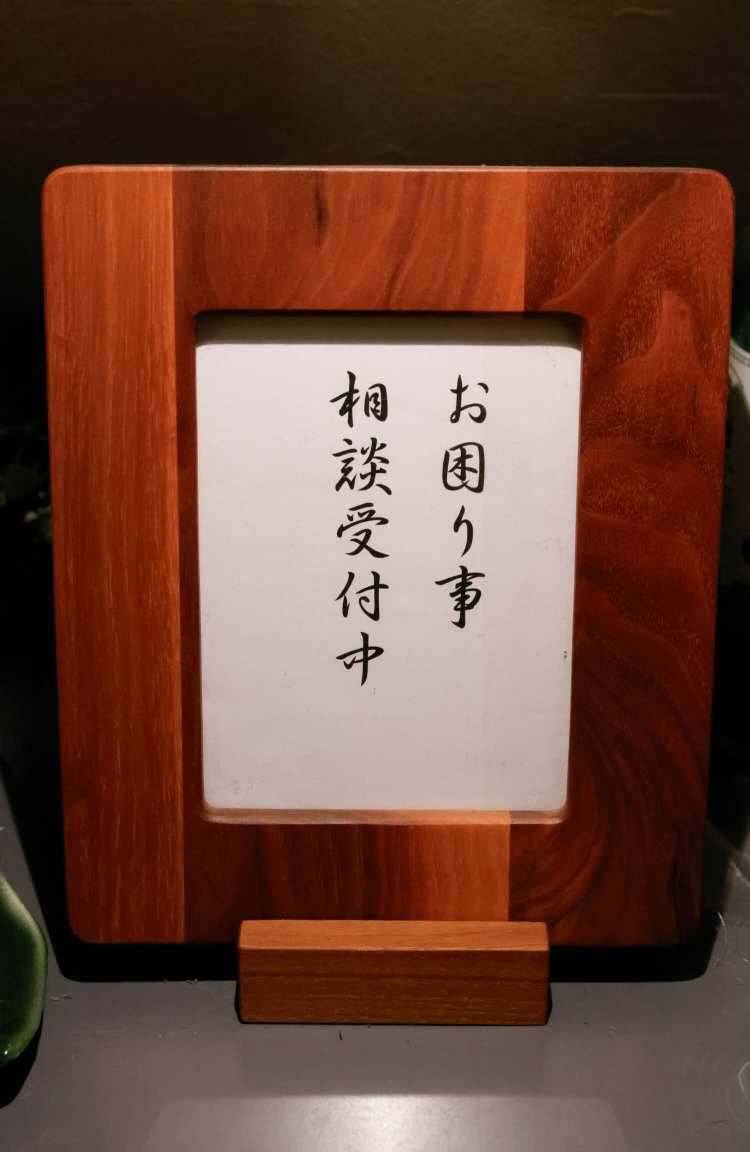 お困り事
相談受付中